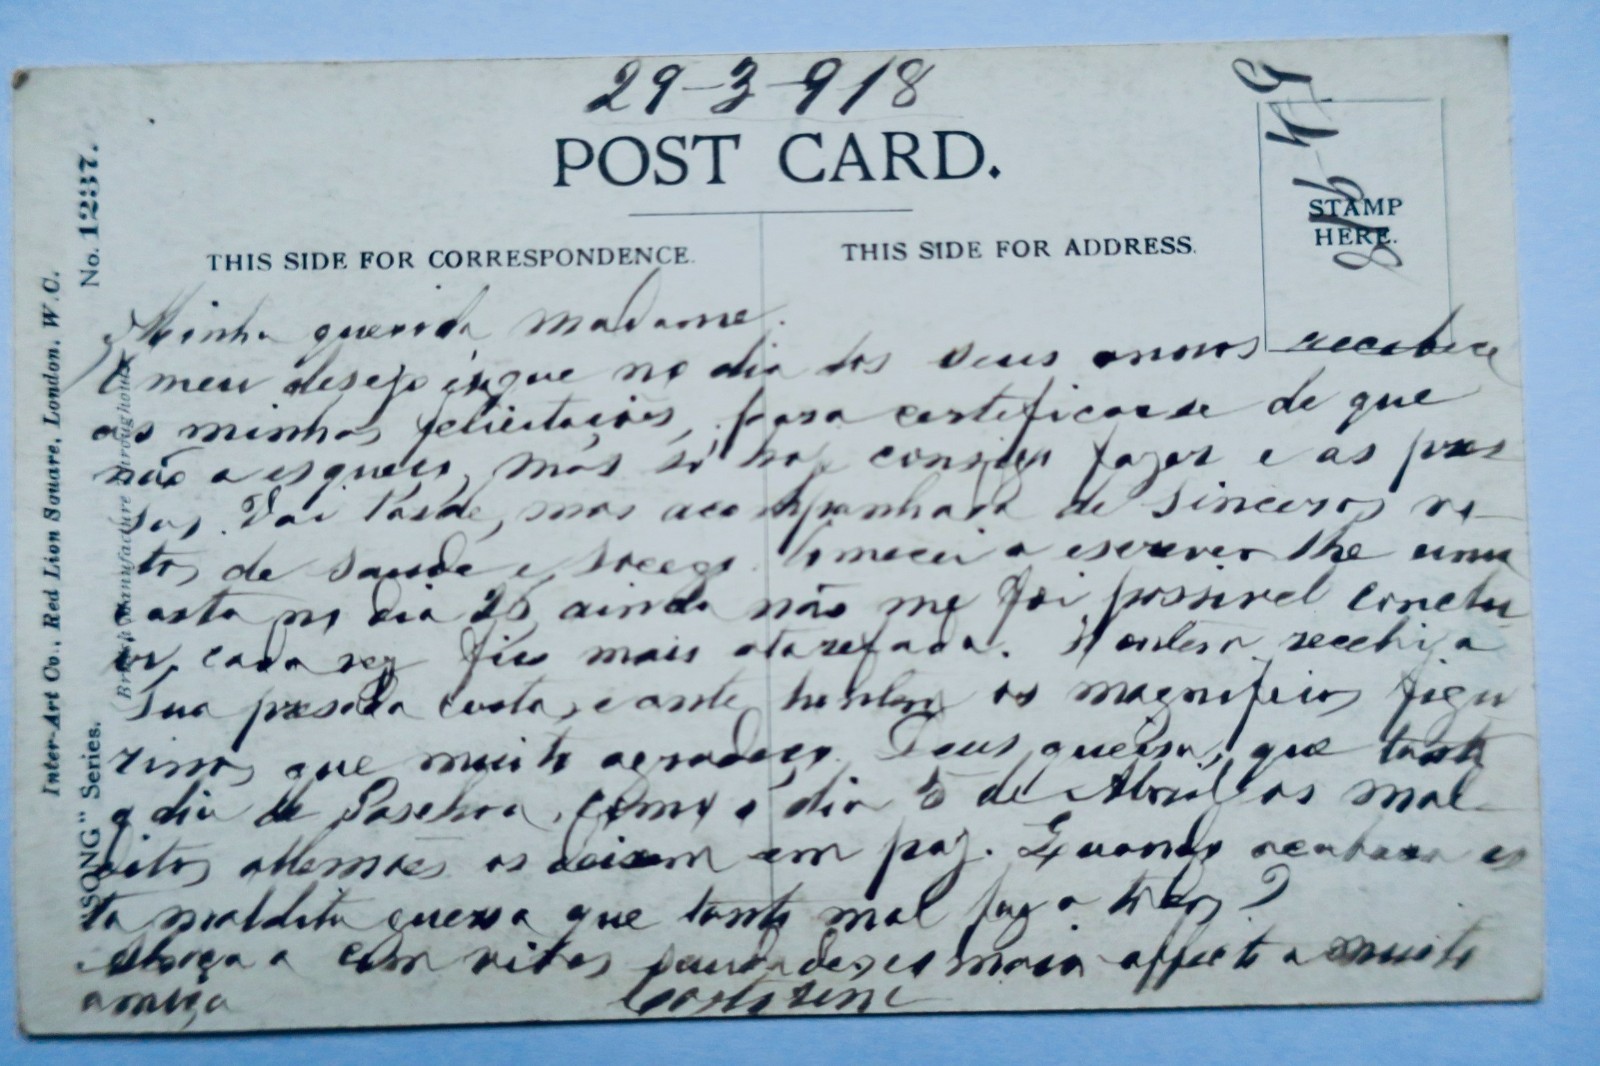 29-3-918
5-4-918
POST CARD.
THIS SIDE FOR CORRESPONDENCE.
THIS SIDE FOR ADDRESS.
STAMP
HERE.
Inter-Art Co., Red Lion Square, London, W.C.
"SONG" Series.
No. 1237.
(British Manufacture throughout)
Minha querida Madame.
O meu desejo é que no dia dos seus annos recebece
as minhas felicitações, para certificarse de que
não a esqueço, mas só hoje consigo fazer e as pres
sas. Vai tarde, mas acompanhada de sinceros vo-
tos de saude e socego. Comecei a escrever lhe uma
carta no dia 25 ainda não me foi possivel conclu
ir, cada vez fico mais atarefada. Hontem recebi a
sua presada carta, e ante hontem os magnificos figu
rinos que muito agradeço. Deus queira, que tanto
o dia de Paschoa, como o dia 5 de Abril os mal-
ditos allemães os deixem em paz. Quando acabara es
ta maldita guerra que tanto mal faz a todos?
Abraça a com vivas saudades a mais affecta e muito
amiga